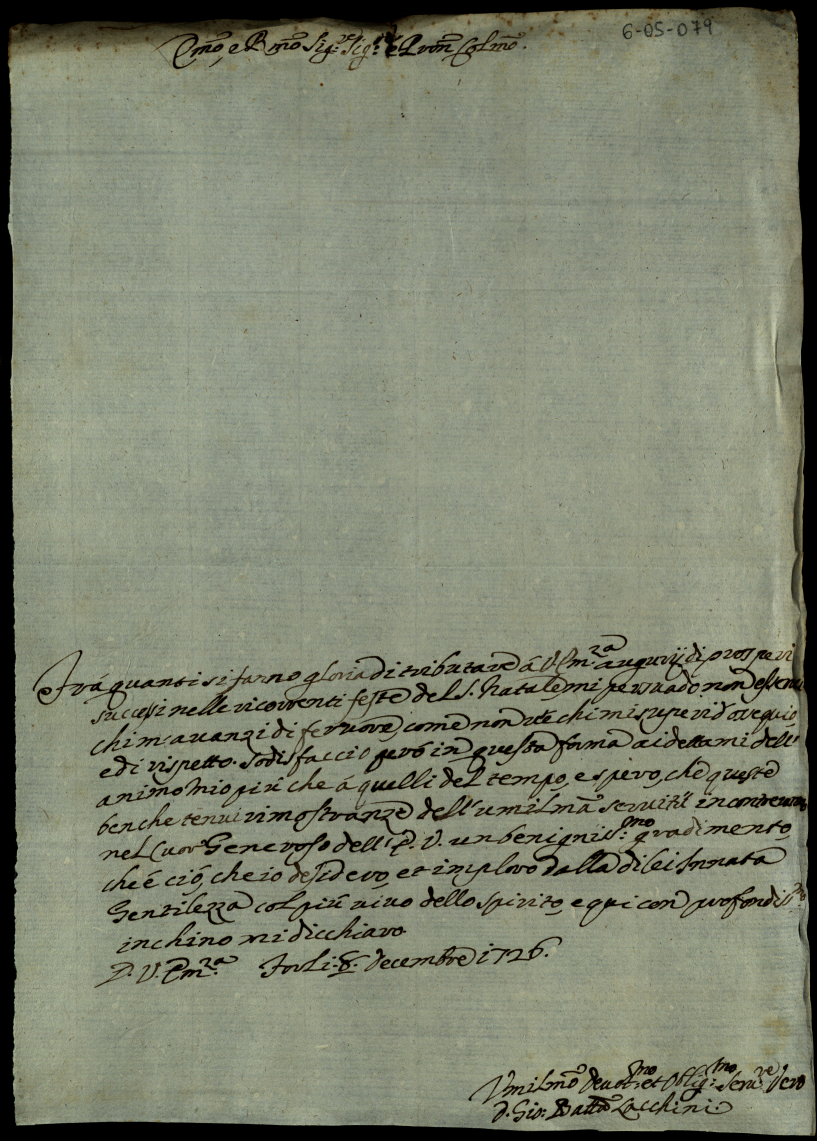 6-05-079
Em̃o, e R.m̃o Sig.re Sig.re e Pron Colm̃o.
Frà quanti si fanno gloria di tributare á V. Em.za augurij di prosperi
successi nelle ricorrenti feste del S. Natale mi persuado non esservi
chi m'avanzi di fervore, come non v'è chi mi superi d'ovequio,
e di rispetto. Sodisfaccio però in questa forma ai dettami dell'
animo mio più che á quelli del tempo, e spero, che queste
benche tenui rimostranze dell'umilm̃a servitù incontreranno
nel Cuor Generoso dell'E. V. un benignis.mo gradimento,
che è ciò, che io desidero, et imploro dalla di lei Innata
Gentilezza col più vivo dello spirito, e qui con profondis.mo
inchino mi dicchiaro
D. V. Em.za Forli: 8. Decembre 1726.
Umilm̃o Devot.mo et Oblig.mo Serv.re Vero
D. Gio: Batta Lacchini.